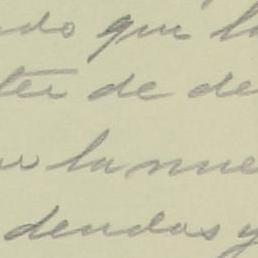 ado que l
ter de de
la nue
deudas y